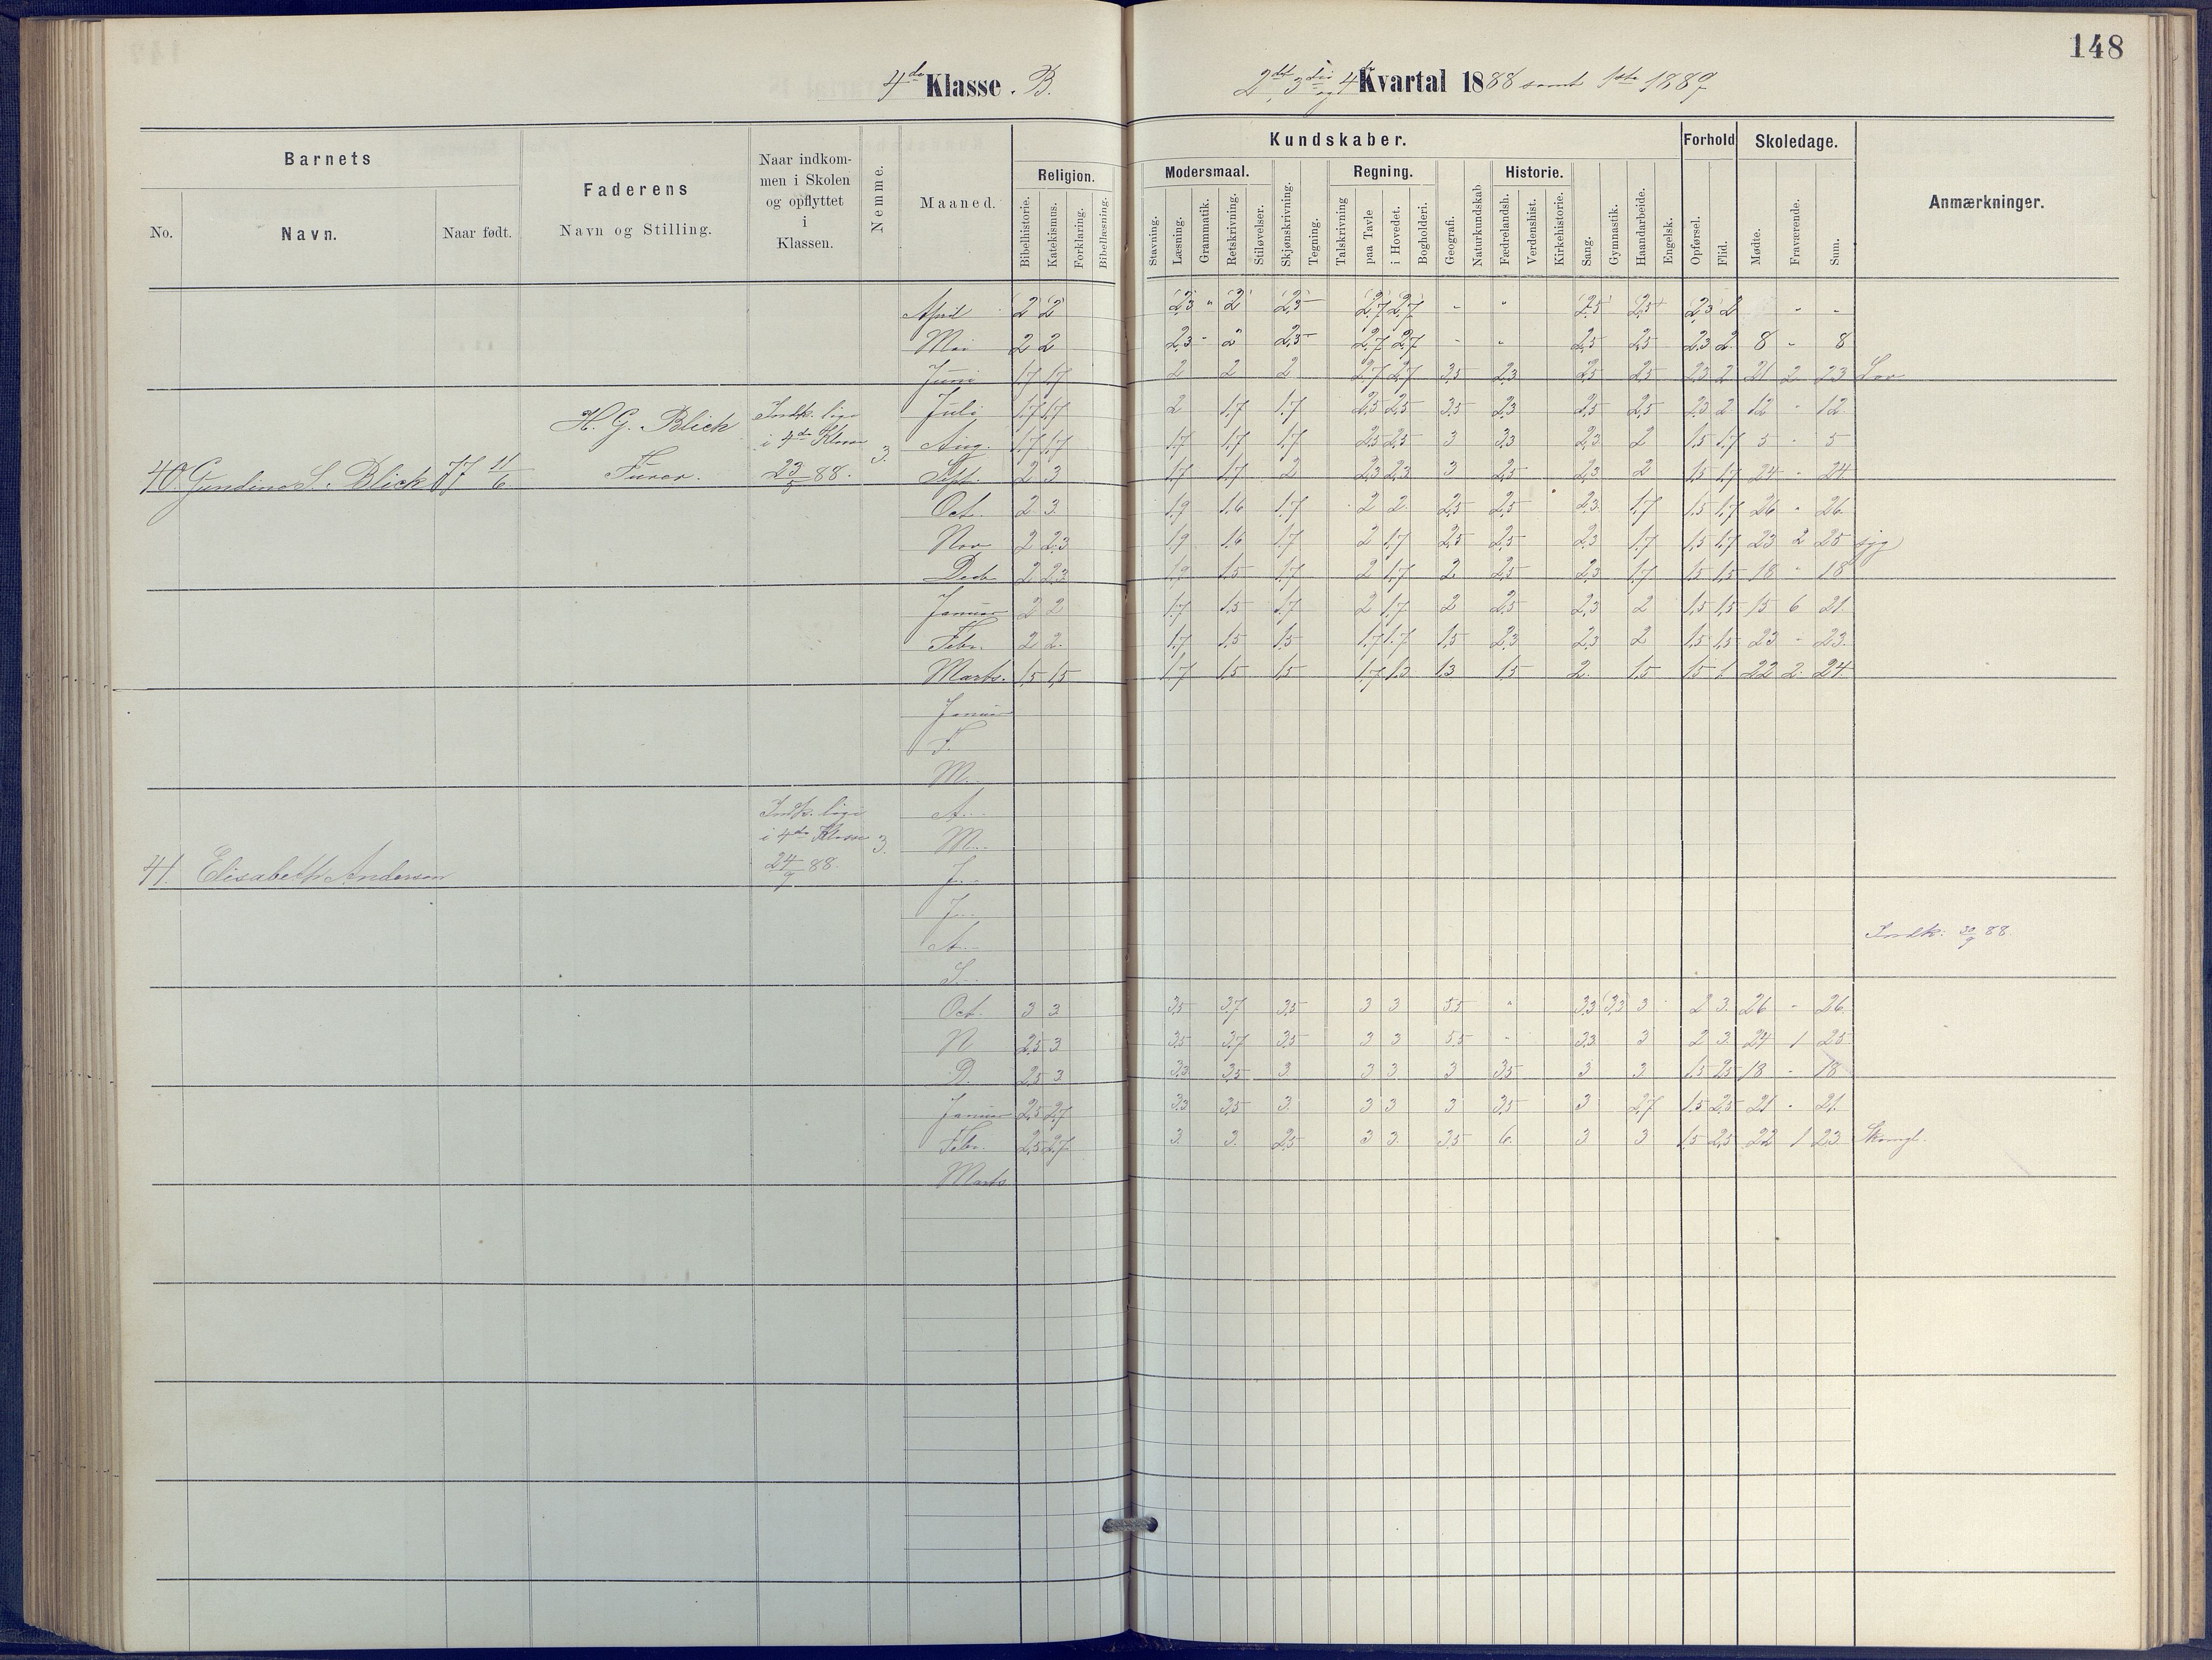 148
4de Klasse. B.
2det, 3die og 4de Kvartal 1888 samt 1ste 1889
Barnets
Faderens
Naar indkommen i Skolen og opflyttet i Klassen.
Nemme.
Maaned.
Kundskaber.
Forhold
Skoledage.
Anmærkninger.
No.
Navn.
Naar født.
Navn og Stilling.
Religion.
Modersmaal.
Regning.
Historie.
Bibelhistorie.
Katekismus.
Forklaring.
Bibellæsning.
Stavning.
Læsning.
Grammatik.
Retskrivning.
Stiløvelser.
Skjønskrivning.
Tegning.
Talskrivning
paa Tavle
i Hovedet.
Bogholderi.
Geografi.
Naturkundskab.
Fædrelandsh.
Verdenshist.
Kirkehistorie.
Sang.
Gymnastik.
Haandarbeide.
Engelsk.
Opførsel.
Flid.
Mødte.
Fraværende.
Sum.
April 2 2 2,3 " 2 2,5 2,7 2,7 - " 2,5 2,5 2,3 2 - -
Mai 2 2 2,3 - 2 2,5 2,7 2,7 - - 2,5 2,5 2,3 2 8 - 8
Juni 1,7 1,7 2 2 2 2,7 2,7 3,5 2,3 2,5 2,5 2,3 2 21 2 23 Lov
H. G. Blich Indk. lige Juli 1,7 1,7 2 1,7 1,7 2,5 2,5 3,5 2,3 2,5 2,5 2,3 2 12 - 12
i 4de Klasse 3. Aug. 1,7 1,7 1,7 1,7 1,7 2,5 2,5 3 3,3 2,3 2 1,5 1,7 5 - 5
40. Gundine S. Blich 77 11/6 Furer. 23/5 88. Sept. 2 3 1,7 1,7 2 2,3 2,3 3 2,5 2,3 2 1,5 1,7 24 - 24
Oct. 2 3 1,9 1,6 1,7 2 2 2,5 2,5 2,3 1,7 1,5 1,7 26 - 26
Nov 2 2,3 1,9 1,6 1,7 2 1,7 2,5 2,5 2,3 1,7 1,5 1,7 23 2 25 syg
Decb 2 2,3 1,9 1,5 1,7 2 1,7 2 2,5 2,3 1,7 1,5 1,5 18 - 18
Januar 2 2 1,7 1,5 1,7 2 1,7 2 2,5 2,3 2 1,5 1,5 15 6 21
Febr. 2 2 1,7 1,5 1,5 1,7 1,7 1,5 2,3 2,3 2 1,5 1,5 23 - 23
Marts. 1,5 1,5 1,7 1,5 1,5 1,7 1,3 1,3 1,5 2 1,5 1,5 1 22 2 24
Januar
F.
M.
Indk. lige A.
i 4de Klasse 3. M.
41. Elisabeth Anderson 24/9 88. J.
J.
A. Indk: 30/9 88.
S.
Oct. 3 3 3,5 3,7 3,5 3 3 5,5 " 3,3 (3,3) 3 2 3 26 - 26
N 2,5 3 3,5 3,7 3,5 3 3 5,5 - 3,3 3 2 3 24 1 25
D. 2,5 3 3,3 3,5 3 3 3 3 3,5 3 3 1,5 2,5 18 - 18
Januar 2,5 2,7 3,3 3,5 3 3 3 3 3,5 3 2,7 1,5 2,5 21 - 21
Febr. 2,5 2,7 3 3 2,5 3 3 3,5 6 3 3 1,5 2,5 22 1 23
Marts